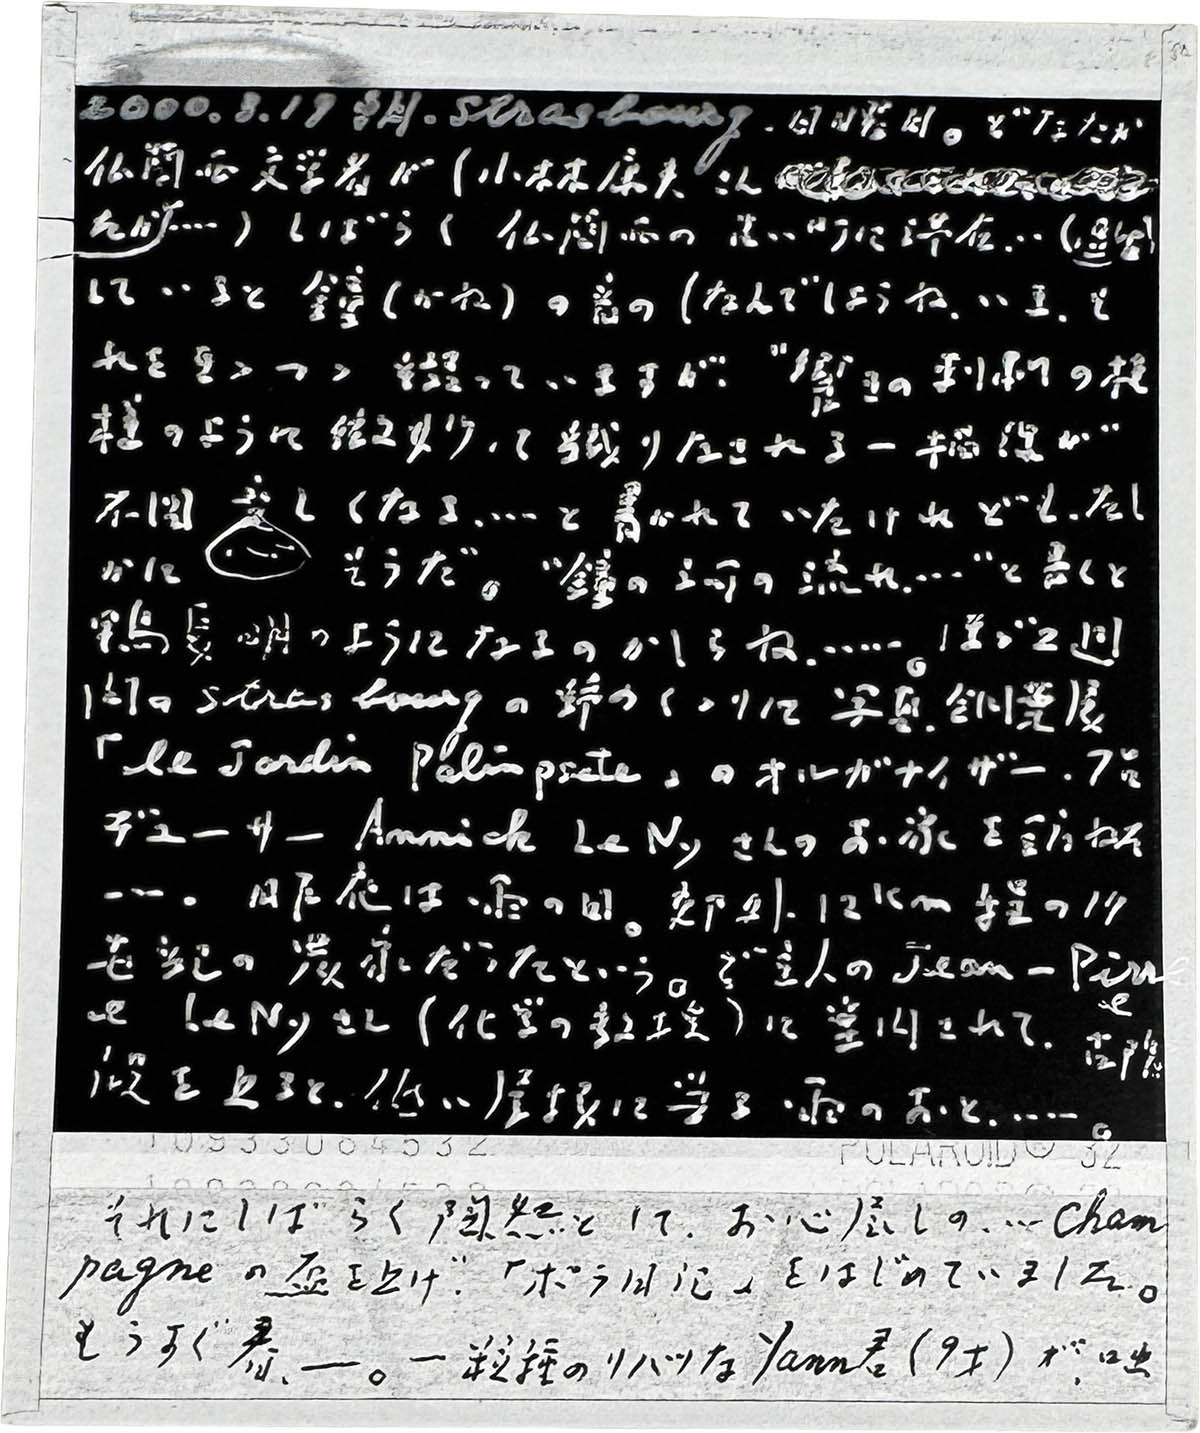 2000.3.19 Strasbourg. 日曜日。どなたか
仏蘭西文学者が(小林康夫さん
だが……)しばらく仏蘭西の 滞在…(
していると 鐘(かね)の音の(なんでしょうね、いま、こ
れを 綴っていますが、“ の刹那の模
様のように 織りなされる一幅 が”
不図 しくなる、……と書かれていたけれども、たし
かに そうだ。“鐘の河の流れ、……”と書くと
鴨長明のようになるのかしらね、……。ほゞ2週
間のStrasbourgの旅のくゝりに 写真、銅葉展
「le Jardin Palimpseste」のオルガナイザー、プロ
デューサー Annick Le Nyさんのお家を訪ねて
……。昨夜は、雨の日。郊外、12km程の19
世紀の農家だったという。ご主人のJean-Pierr
e Le Nyさん(化学の教授)に 案内されて、
段を上ると、低い屋根に 雨のおと、……。
10933064532 POLAROID® 32
それにしばらく陶然として、お心尽しの、…Cham
pagneの盃を上げ、「ポラ日記」をはじめていました。
もうすぐ春、――。一粒種のリパツなYann君(9才)が、